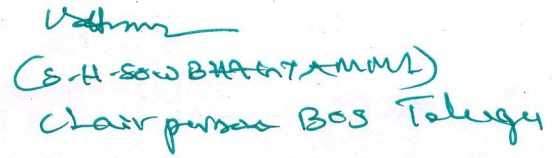 (S-H-SOWBHAGYAMMA)
Chair person BOS Telugu